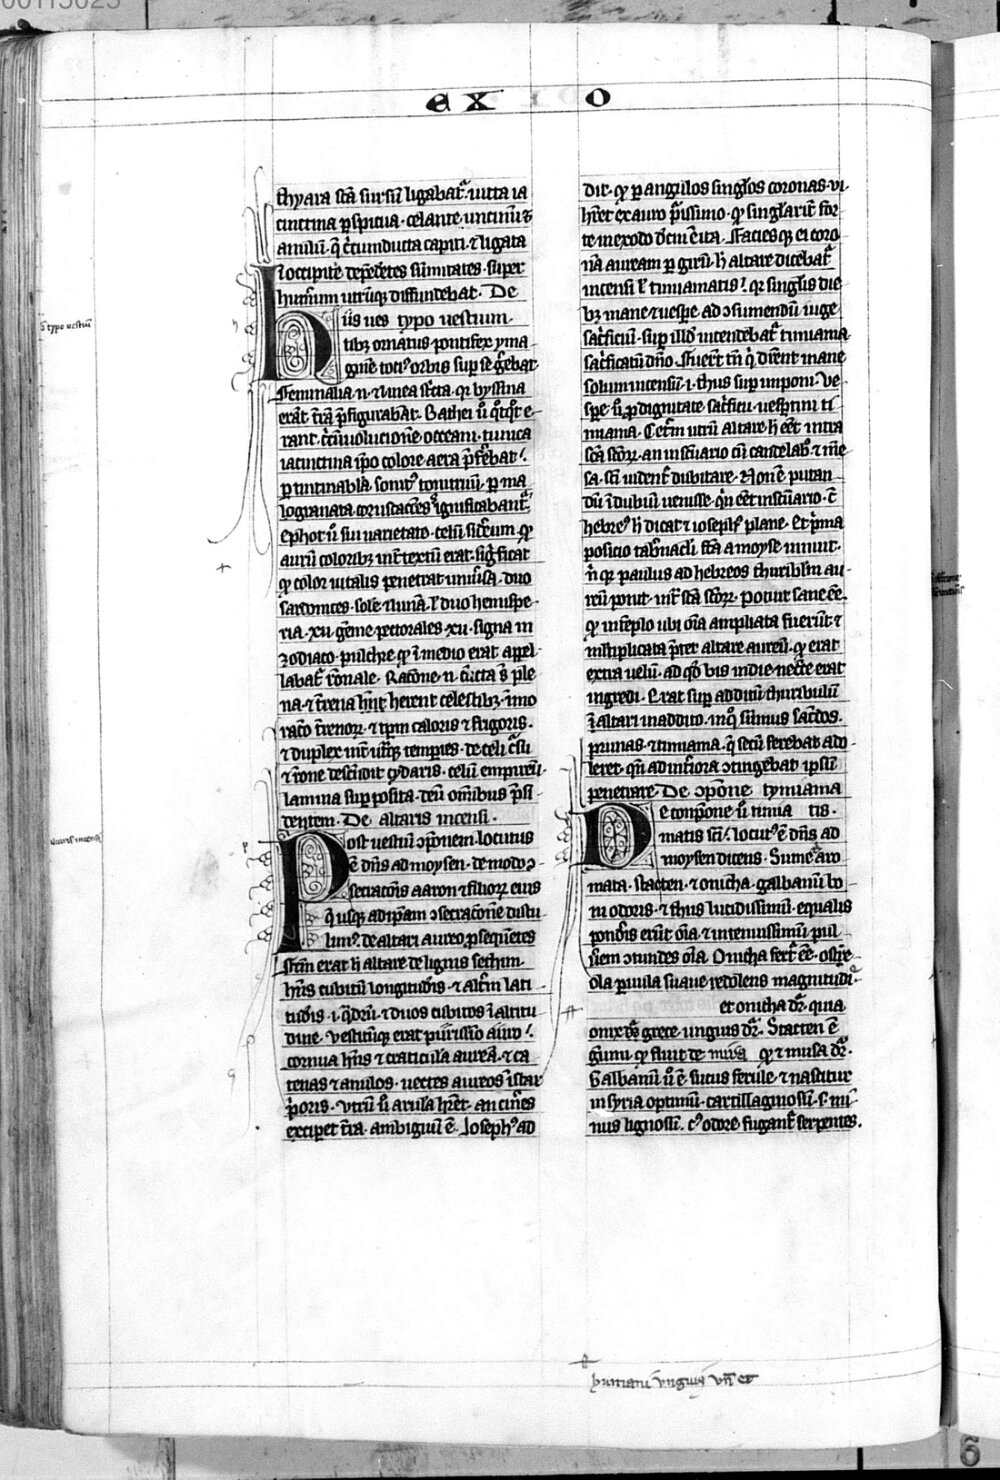 00113025
EX O
thyara sc̄a sursū ligabat᷑ · uitta ia
cinctina ꝑspicua · celante uncinū ⁊
anulū · q̄ c̄cumducta capiti · ⁊ ligata
In occipite depēdētes sūmitates · super
hum̄um utrūq; diffundebat · De
Hiis ues typo uestium ·
tibꝫ ornatus pontifex yma
ginē toti᷒ orbis sup̱ se gērebat ·
Feminalia · n · ⁊ linea st͛cta · qr byssina
erāt t͛rā p̄figurabāt · Balthei ū
rant · c͛cūuolucionē occeani · tunica
iacinctina ip̄o colore aera p̄ferebat ·
ꝑ tintinabla · sonit᷒ tonitruū · ꝑ ma
logranata coruscac̄ōes significabant᷑ ·
Ephot ū sui uarietate · celū sid̓eum · qꝫ
aurū coloribꝫ int̓textū erat · sig̓ficat
qꝫ color uitalis penetrat uniūsa · duo
sardonices · solē ⁊ lunā · ł duo hemispe
ria · xii · gēme pectorales · xii · signa in
zodiaco · pulchre qꝫ ī medio erat appel
labat᷑ rōnale · Racōne · n · cūcta sūt ple
na · ⁊ t͛rena hn̄t herent celestibꝫ · īmo
raco t͛renoꝝ · ⁊ tp̄m caloris ⁊ frigoris ·
⁊ duplex int̓ ut͛q; temꝑies · de celi c͛su
⁊ rōne descēdit · cydaris · celū empireū ·
lamina sup̱posita · deū om̄ibus p̄si
dentem · De altaris incensi ·
Post uestiū ɔp̄onem · locutus
ē dn̄s ad moysen · de modo ɔ
secrac̄ōis aaron ⁊ filioꝝ eius
q̓ usq; ad ip̄am ɔsecrac̄onē distu
lim᷒ · de altari aureo ꝑsequētes
Factū erat h̓ altare de lignis sethim ·
hn̄s cubitū longitudīs · ⁊ alt͛m lati
tudīs · i · q̄drū · ⁊ duos cubitos ī altitu
dine · Vestitūq; erat purissīo auro ·
cornua hn̄s ⁊ craticulā aureā · ⁊ ca
tenas ⁊ anulos · uectes aureos īstar
p̓oris · Vtrū ū arulā hr̄et · an cin̄es
exciꝑet t͛ra · ambiguū ē · Ioseph᷒ ad
dit · qꝫ ꝑ angulos singlōs coronas · ui ·
hr̄et ex auro p̓issimo · qꝫ singlarit̓ for
te in exodo dc̄m ē ita · Faciesqꝫ ei coro
nā auream ꝑ girū · h̓ altare dicebat᷑
incensi ł timiamatis · qr singlīs die
bꝫ mane ⁊ uesꝑe ad ɔsumendū iuge
sac͛ficiū · sup̱ illđ incendebat᷑ timiama
sac͛ficatū dn̄o · Fuer̄t tn̄ q̓ dic̓ent mane
solum incensū · i · thus sup̱imponi · Ve
sꝑe ū ꝑ dignitate sac͛ficii uesꝑtini ti
miama · Cet͛m utrū altare h̓ eēt intra
sc̄a sc̄oꝝ · an in sc̄uario cū candelab͛ · ⁊ mē
sa · sc̄i uident᷑ dubitare · Non ē putan
dū ī dubiū uenisse · q̓n eēt in sc̄uario · c̄
hebre᷒ h̓ dicat ⁊ ioseph᷒ plane · Et p͛ma
posicio tab̓nacli fc̄a a moyse innuit ·
n̄ qr paulus ad hebreos thuriblm̄ au
reū ponit · int̓ sc̄a sc̄oꝝ · Potuit sane eē
qꝫ in tēplo ubi om̄ia ampliata fuerūt ⁊
multiplicata p̄ter altare aureū · qꝫ erat
extra uelū · ad qđ bis in die nec̄ce erat
ingredi · Erat sup̱additū thuribulū
ī altari in addito · in q͛ sūmus sac̓dos ·
prunas · ⁊ timiama · q̄ secū ferebat ado
leret · qn̄ ad int̓iora ɔtingebat ip̄sū
penetrare · De ɔp̄one tymiama
De compōne ū timia tis ·
matis sc̄i · locut᷒ ē dn̄s ad
moysen dicens · Sume aro
mata · stacten · ⁊ onicha · galbanū bo
ni odoris · ⁊ thus lucidissimū · equalis
pond͛is erūt om̄ia · ⁊ in tenuissimū pul
u̓em ɔtundes om̄ia · Onicha fert᷑ eē · ostre
ola ꝑuula suaue redolens magnitudī᷒
et onicha dr̄ · quia
onix đs grece · unguis dr̄ · Stacten ē
gūmi · qꝫ fluit de mirra qꝫ ⁊ mirra dr̄ ·
Galbanū ū ē sucus ferule · ⁊ nascitur
in syria optimū · cartillaginosū · ſ · mi
nus lignosū · c᷒ odore fugant᷑ serpentes ·
humani unguis un̄ et
6